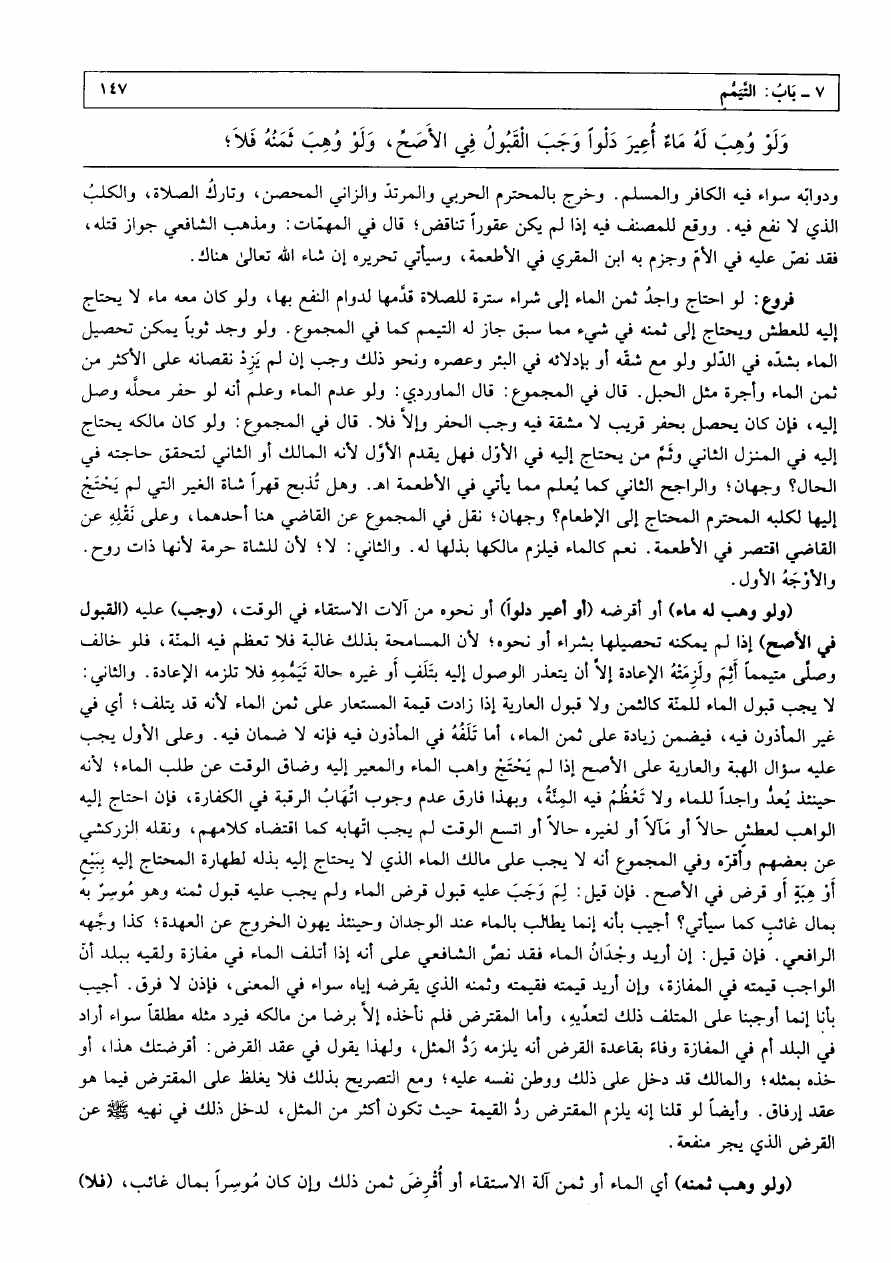 ٧ ـ بَابُ: التَّيَمُّمِ ١٤٧
وَلَوْ وُهِبَ لَهُ مَاءٌ أُعِيرَ دَلْواً وَجَبَ الْقَبُولُ فِي الأَصَحِّ، وَلَوْ وُهِبَ ثَمَنُهُ فَلاَ؛
ودوابّه سواء فيه الكافر والمسلم. وخرج بالمحترم الحربي والمرتدّ والزاني المحصن، وتاركُ الصلاة، والكلبُ
الذي لا نفع فيه. ووقع للمصنف فيه إذا لم يكن عقوراً تناقض؛ قال في المهمّات: ومذهب الشافعي جواز قتله،
فقد نصّ عليه في الأمّ وجزم به ابن المقري في الأطعمة، وسيأتي تحريره إن شاء الله تعالىٰ هناك.
فروع: لو احتاج واجدُ ثمن الماء إلى شراء سترة للصلاة قدّمها لدوام النفع بها، ولو كان معه ماء لا يحتاج
إليه للعطش ويحتاج إلى ثمنه في شيء مما سبق جاز له التيمم كما في المجموع. ولو وجد ثوباً يمكن تحصيل
الماء بشدّه في الدّلو ولو مع شقّه أو بإدلائه في البئر وعصره ونحو ذلك وجب إن لم يَزِدْ نقصانه على الأكثر من
ثمن الماء وأجرة مثل الحبل. قال في المجموع: قال الماوردي: ولو عدم الماء وعلم أنه لو حفر محلّه وصل
إليه، فإن كان يحصل بحفر قريب لا مشقة فيه وجب الحفر وإلاّ فلا. قال في المجموع: ولو كان مالكه يحتاج
إليه في المنزل الثاني وثَمَّ من يحتاج إليه في الأوّل فهل يقدم الأوّل لأنه المالك أو الثاني لتحقق حاجته في
الحال؟ وجهان؛ والراجح الثاني كما يُعلم مما يأتي في الأطعمة اهـ. وهل تُذبح قهراً شاة الغير التي لم يَحْتَجْ
إليها لكلبه المحترم المحتاج إلى الإطعام؟ وجهان؛ نقل في المجموع عن القاضي هنا أحدهما، وعلى نَقْلِهِ عن
القاضي اقتصر في الأطعمة. نعم كالماء فيلزم مالكها بذلها له. والثاني: لا؛ لأن للشاة حرمة لأنها ذات روح.
والأوْجَهُ الأول.
(ولو وهب له ماء) أو أقرضه (أو أعير دلواً) أو نحوه من آلات الاستقاء في الوقت، (وجب) عليه (القبول
في الأصح) إذا لم يمكنه تحصيلها بشراء أو نحوه؛ لأن المسامحة بذلك غالبة فلا تعظم فيه المنّة، فلو خالف
وصلّى متيمماً أَثِمَ ولَزِمَتْهُ الإعادة إلاّ أن يتعذر الوصول إليه بتَلَفٍ أو غيره حالة تَيَمُّمِهِ فلا تلزمه الإعادة. والثاني:
لا يجب قبول الماء للمنّة كالثمن ولا قبول العارية إذا زادت قيمة المستعار على ثمن الماء لأنه قد يتلف؛ أي في
غير المأذون فيه، فيضمن زيادة على ثمن الماء، أما تَلَفُهُ في المأذون فيه فإنه لا ضمان فيه. وعلى الأول يجب
عليه سؤال الهبة والعارية على الأصح إذا لم يَحْتَجْ واهب الماء والمعير إليه وضاق الوقت عن طلب الماء؛ لأنه
حينئذ يُعدُّ واجداً للماء ولا تَعْظُمُ فيه المِنَّةُ، وبهذا فارق عدم وجوب اتِّهَابُ الرقبة في الكفارة، فإن احتاج إليه
الواهب لعطشٍ حالاً أو مَآلاً أو لغيره حالاً أو اتسع الوقت لم يجب اتّهابه كما اقتضاه كلامهم، ونقله الزركشي
عن بعضهم وأقرّه وفي المجموع أنه لا يجب على مالك الماء الذي لا يحتاج إليه بذله لطهارة المحتاج إليه بِبَيْعٍ
أَوْ هِبَةٍ أو قرض في الأصح. فإن قيل: لِمَ وَجَبَ عليه قبول قرض الماء ولم يجب عليه قبول ثمنه وهو مُوسِرٌ به
بمال غائبٍ كما سيأتي؟ أجيب بأنه إنما يطالب بالماء عند الوجدان وحينئذ يهون الخروج عن العهدة؛ كذا وجَّهه
الرافعي. فإن قيل: إن أريد وِجْدَانُ الماء فقد نصَّ الشافعي على أنه إذا أتلف الماء في مفازة ولقيه ببلد أنّ
الواجب قيمته في المفازة، وإن أريد قيمته فقيمته وثمنه الذي يقرضه إياه سواء في المعنى، فإذن لا فرق. أجيب
بأنا إنما أوجبنا على المتلف ذلك لتعدِّيهِ، وأما المقترض فلم نأخذه إلاّ برضا من مالكه فيرد مثله مطلقاً سواء أراد
في البلد أم في المفازة وفاءً بقاعدة القرض أنه يلزمه رَدُّ المثل، ولهذا يقول في عقد القرض: أقرضتك هذا، أو
خذه بمثله؛ والمالك قد دخل على ذلك ووطن نفسه عليه؛ ومع التصريح بذلك فلا يغلظ على المقترض فيما هو
عقد إرفاق. وأيضاً لو قلنا إنه يلزم المقترض ردُّ القيمة حيث تكون أكثر من المثل، لدخل ذلك في نهيه ﷺ عن
القرض الذي يجر منفعة.
(ولو وهب ثمنه) أي الماء أو ثمن آلة الاستقاء أو أُقْرِضَ ثمن ذلك وإن كان مُوسِراً بمال غائب، (فلا)